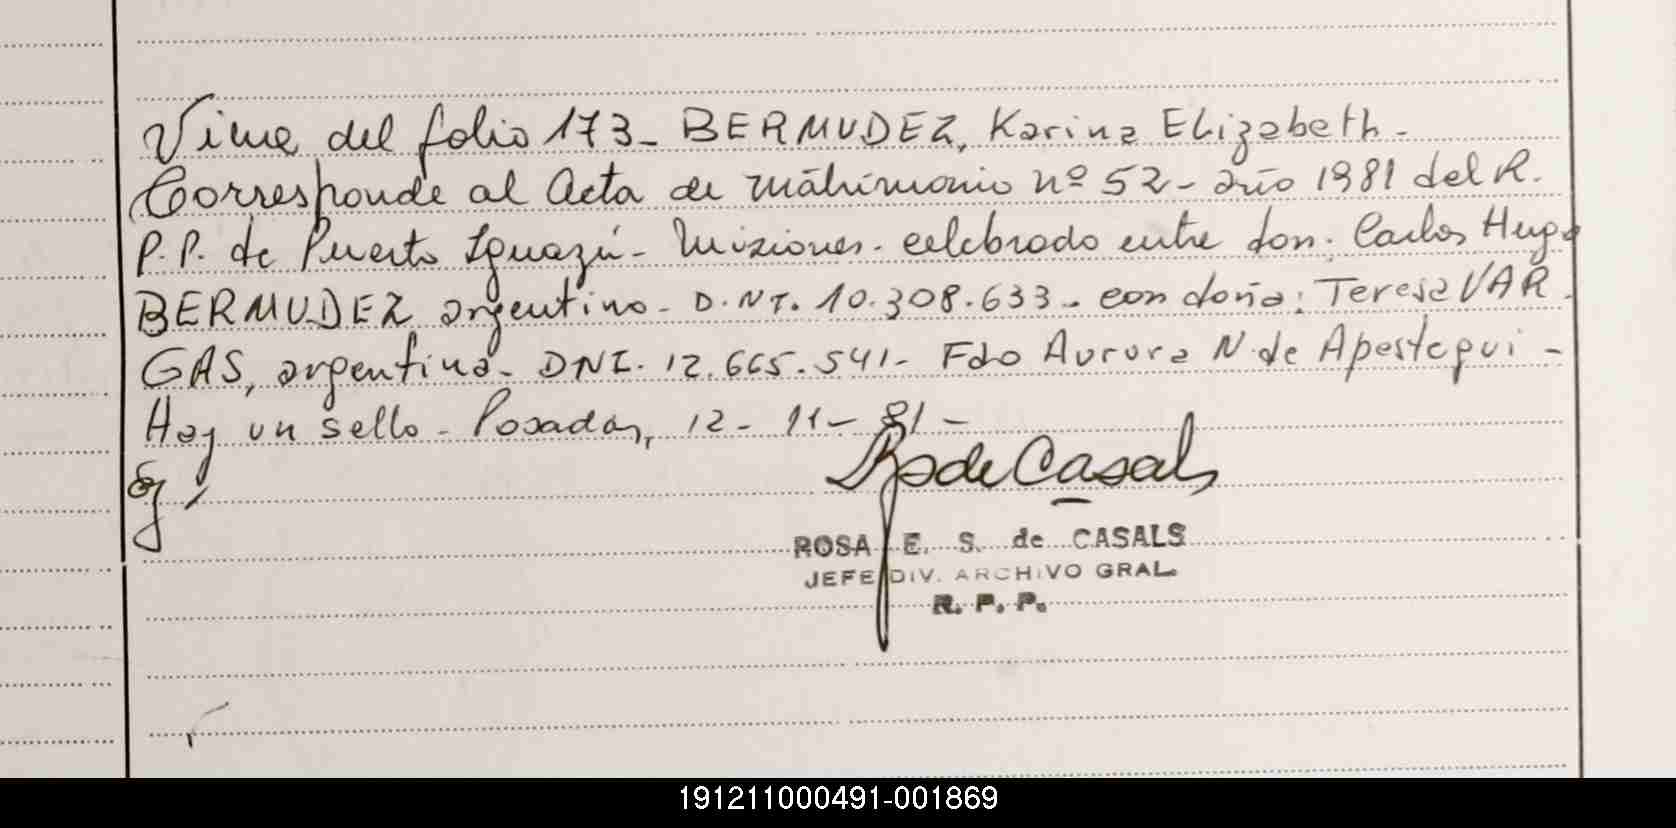 Viene del folio 173- BERMUDEZ, Karina Elizabeth-
Corresponde al Acta de matrimonio nº 52- año 1981 del R.
P.P. de Puerto Iguazú- Misiones- celebrado entre don: Carlos Hugo
BERMUDEZ argentino- D.N.I. 10.308.633- con doña: Teresa VAR
GAS, argentina- DNI. 12.665.541- Fdo Aurora N de Apestegui-
Hay un sello- Posadas, 12- 11- 81-
de Casals
ROSA E. S. de CASALS
JEFE DIV. ARCHIVO GRAL.
R. P. P.
191211000491-001869